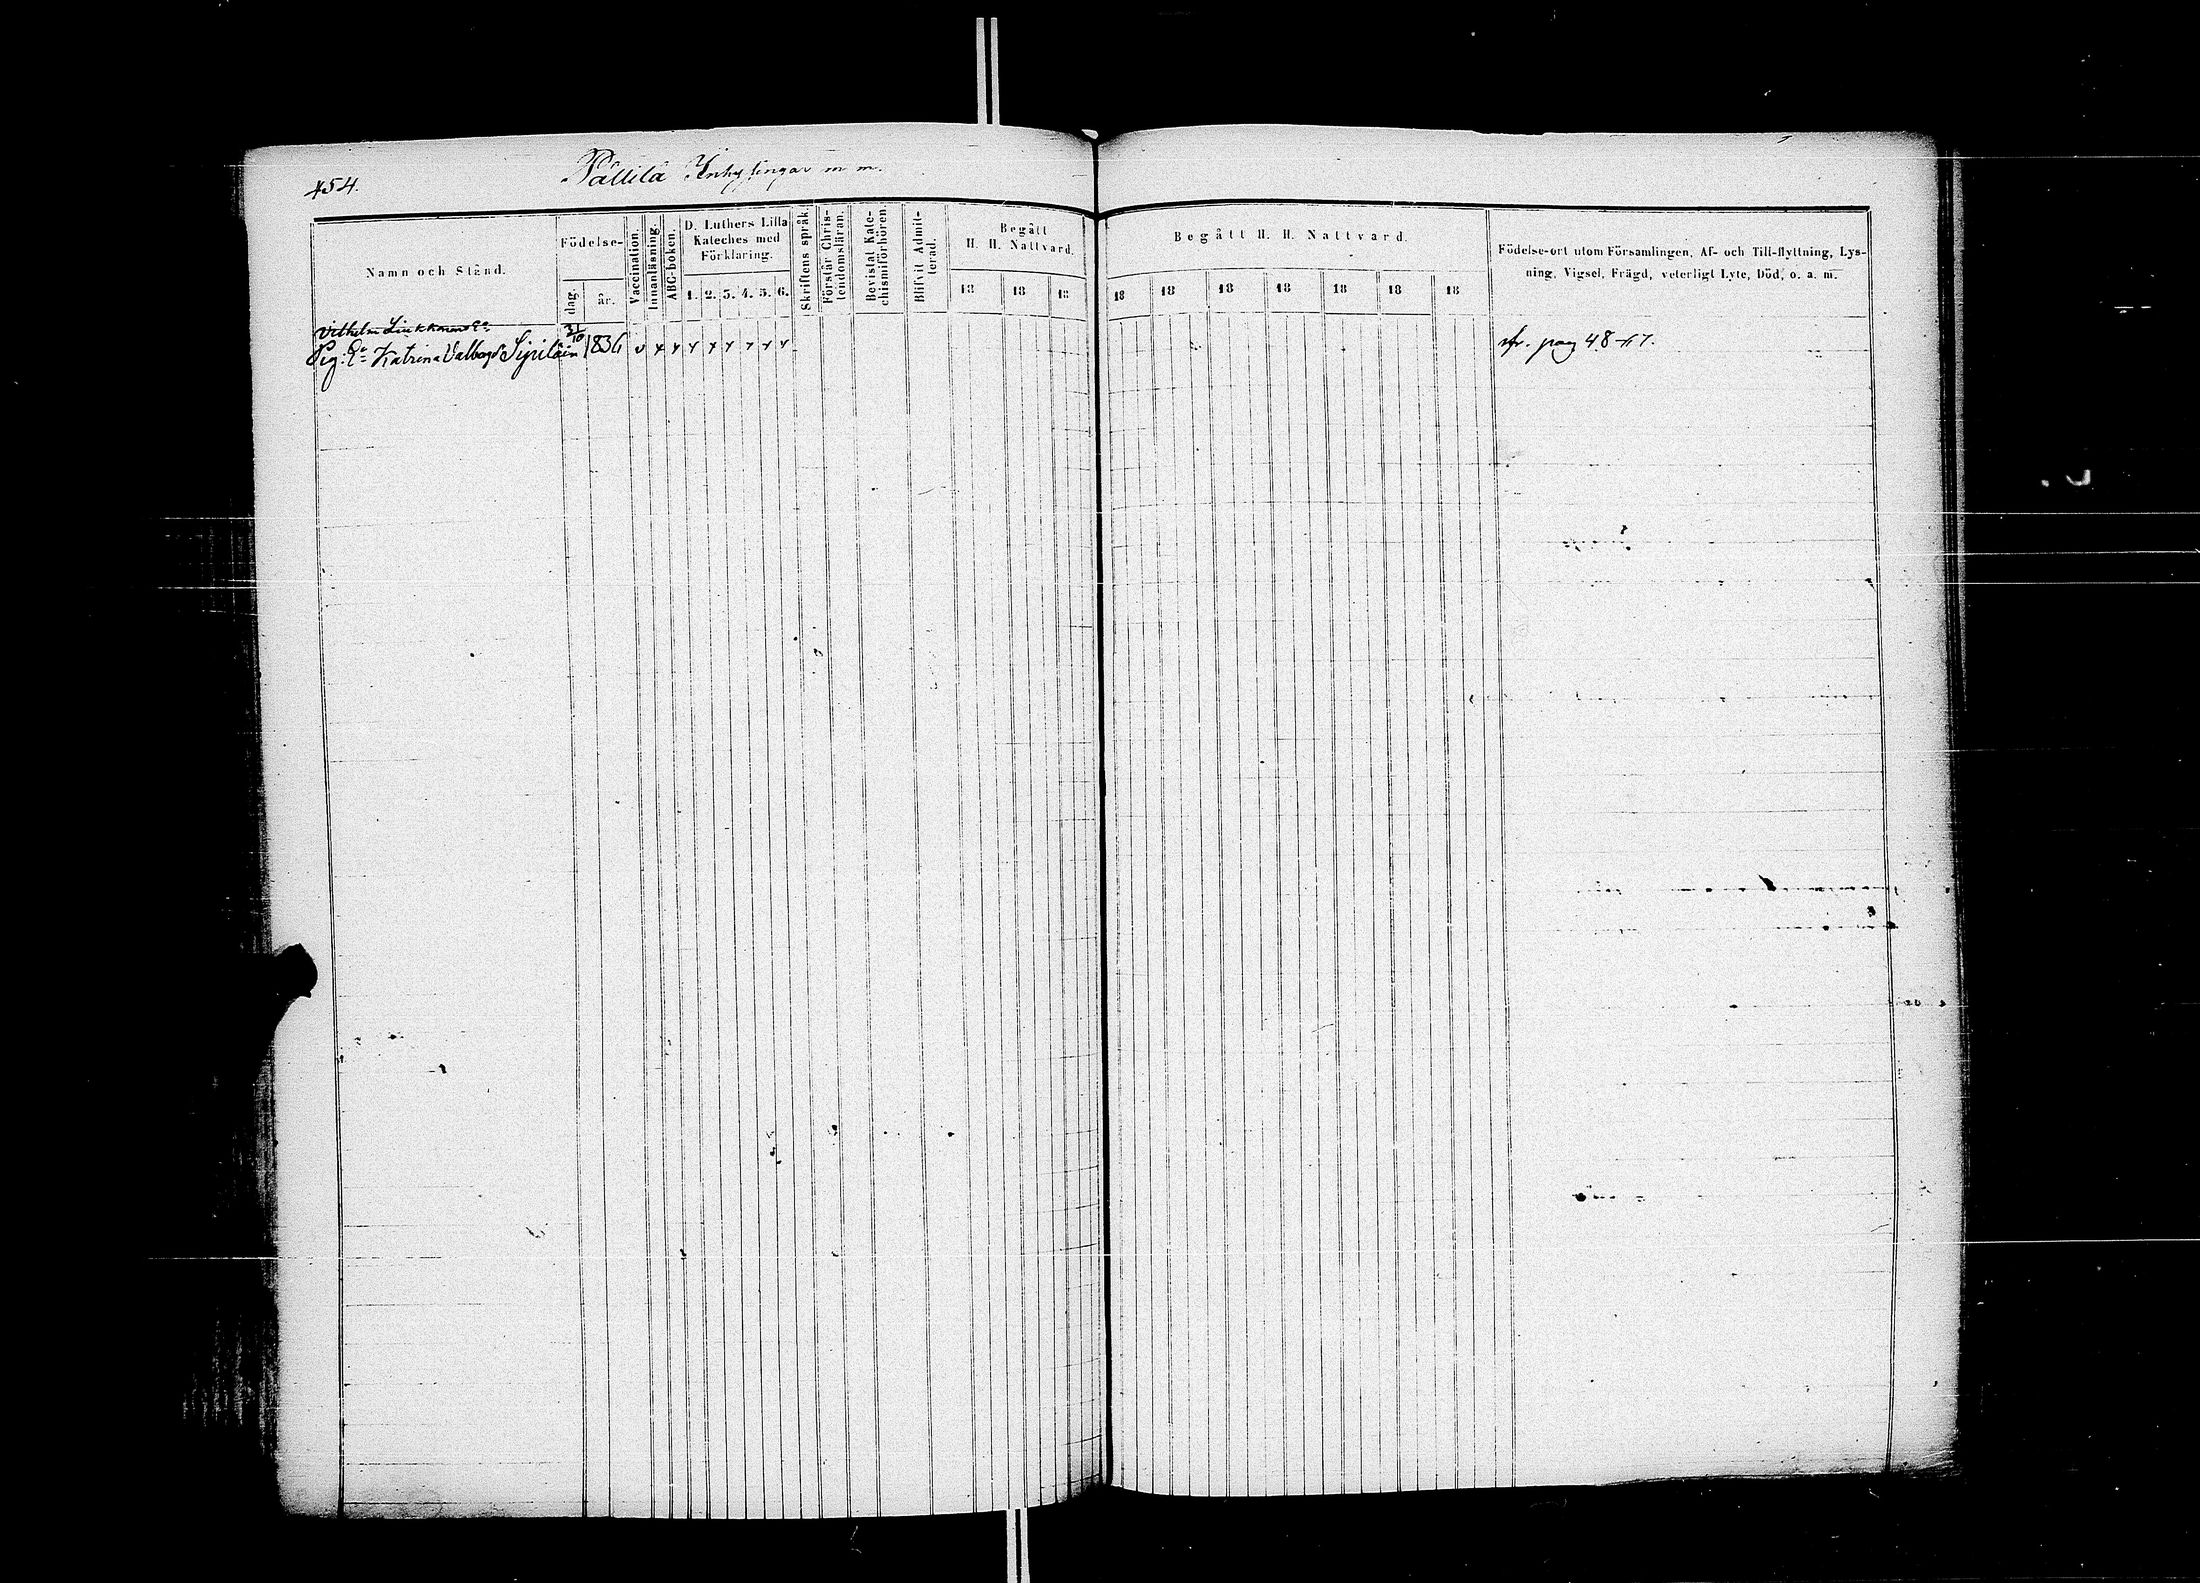 454.
Pällilä Inhysingar m m.
Namn och Stånd.
Födelse-
dag.
år.
Vaccination.
Innanläsning.
ABC-boken.
D. Luthers Lilla
Kateches med
Förklaring.
1. 2. 3. 4. 5. 6.
Skriftens språk.
Förstår Chris-
tendomsläran.
Bevistat Kate-
chismiförhören.
Blifvit Admit-
terad.
Begått
H. H. Nattvard.
18 18 18
Begått H. H. Nattvard.
18 18 18 18 18 18 18
Födelse-ort utom Församlingen, Af- och Till-flyttning, Lys-
ning, Vigsel, Frägd, veterligt Lyte, Död, o. a. m.
Vilhelm
Pig. Katrina Sipiläin 31/10 1836
fr. pag 48